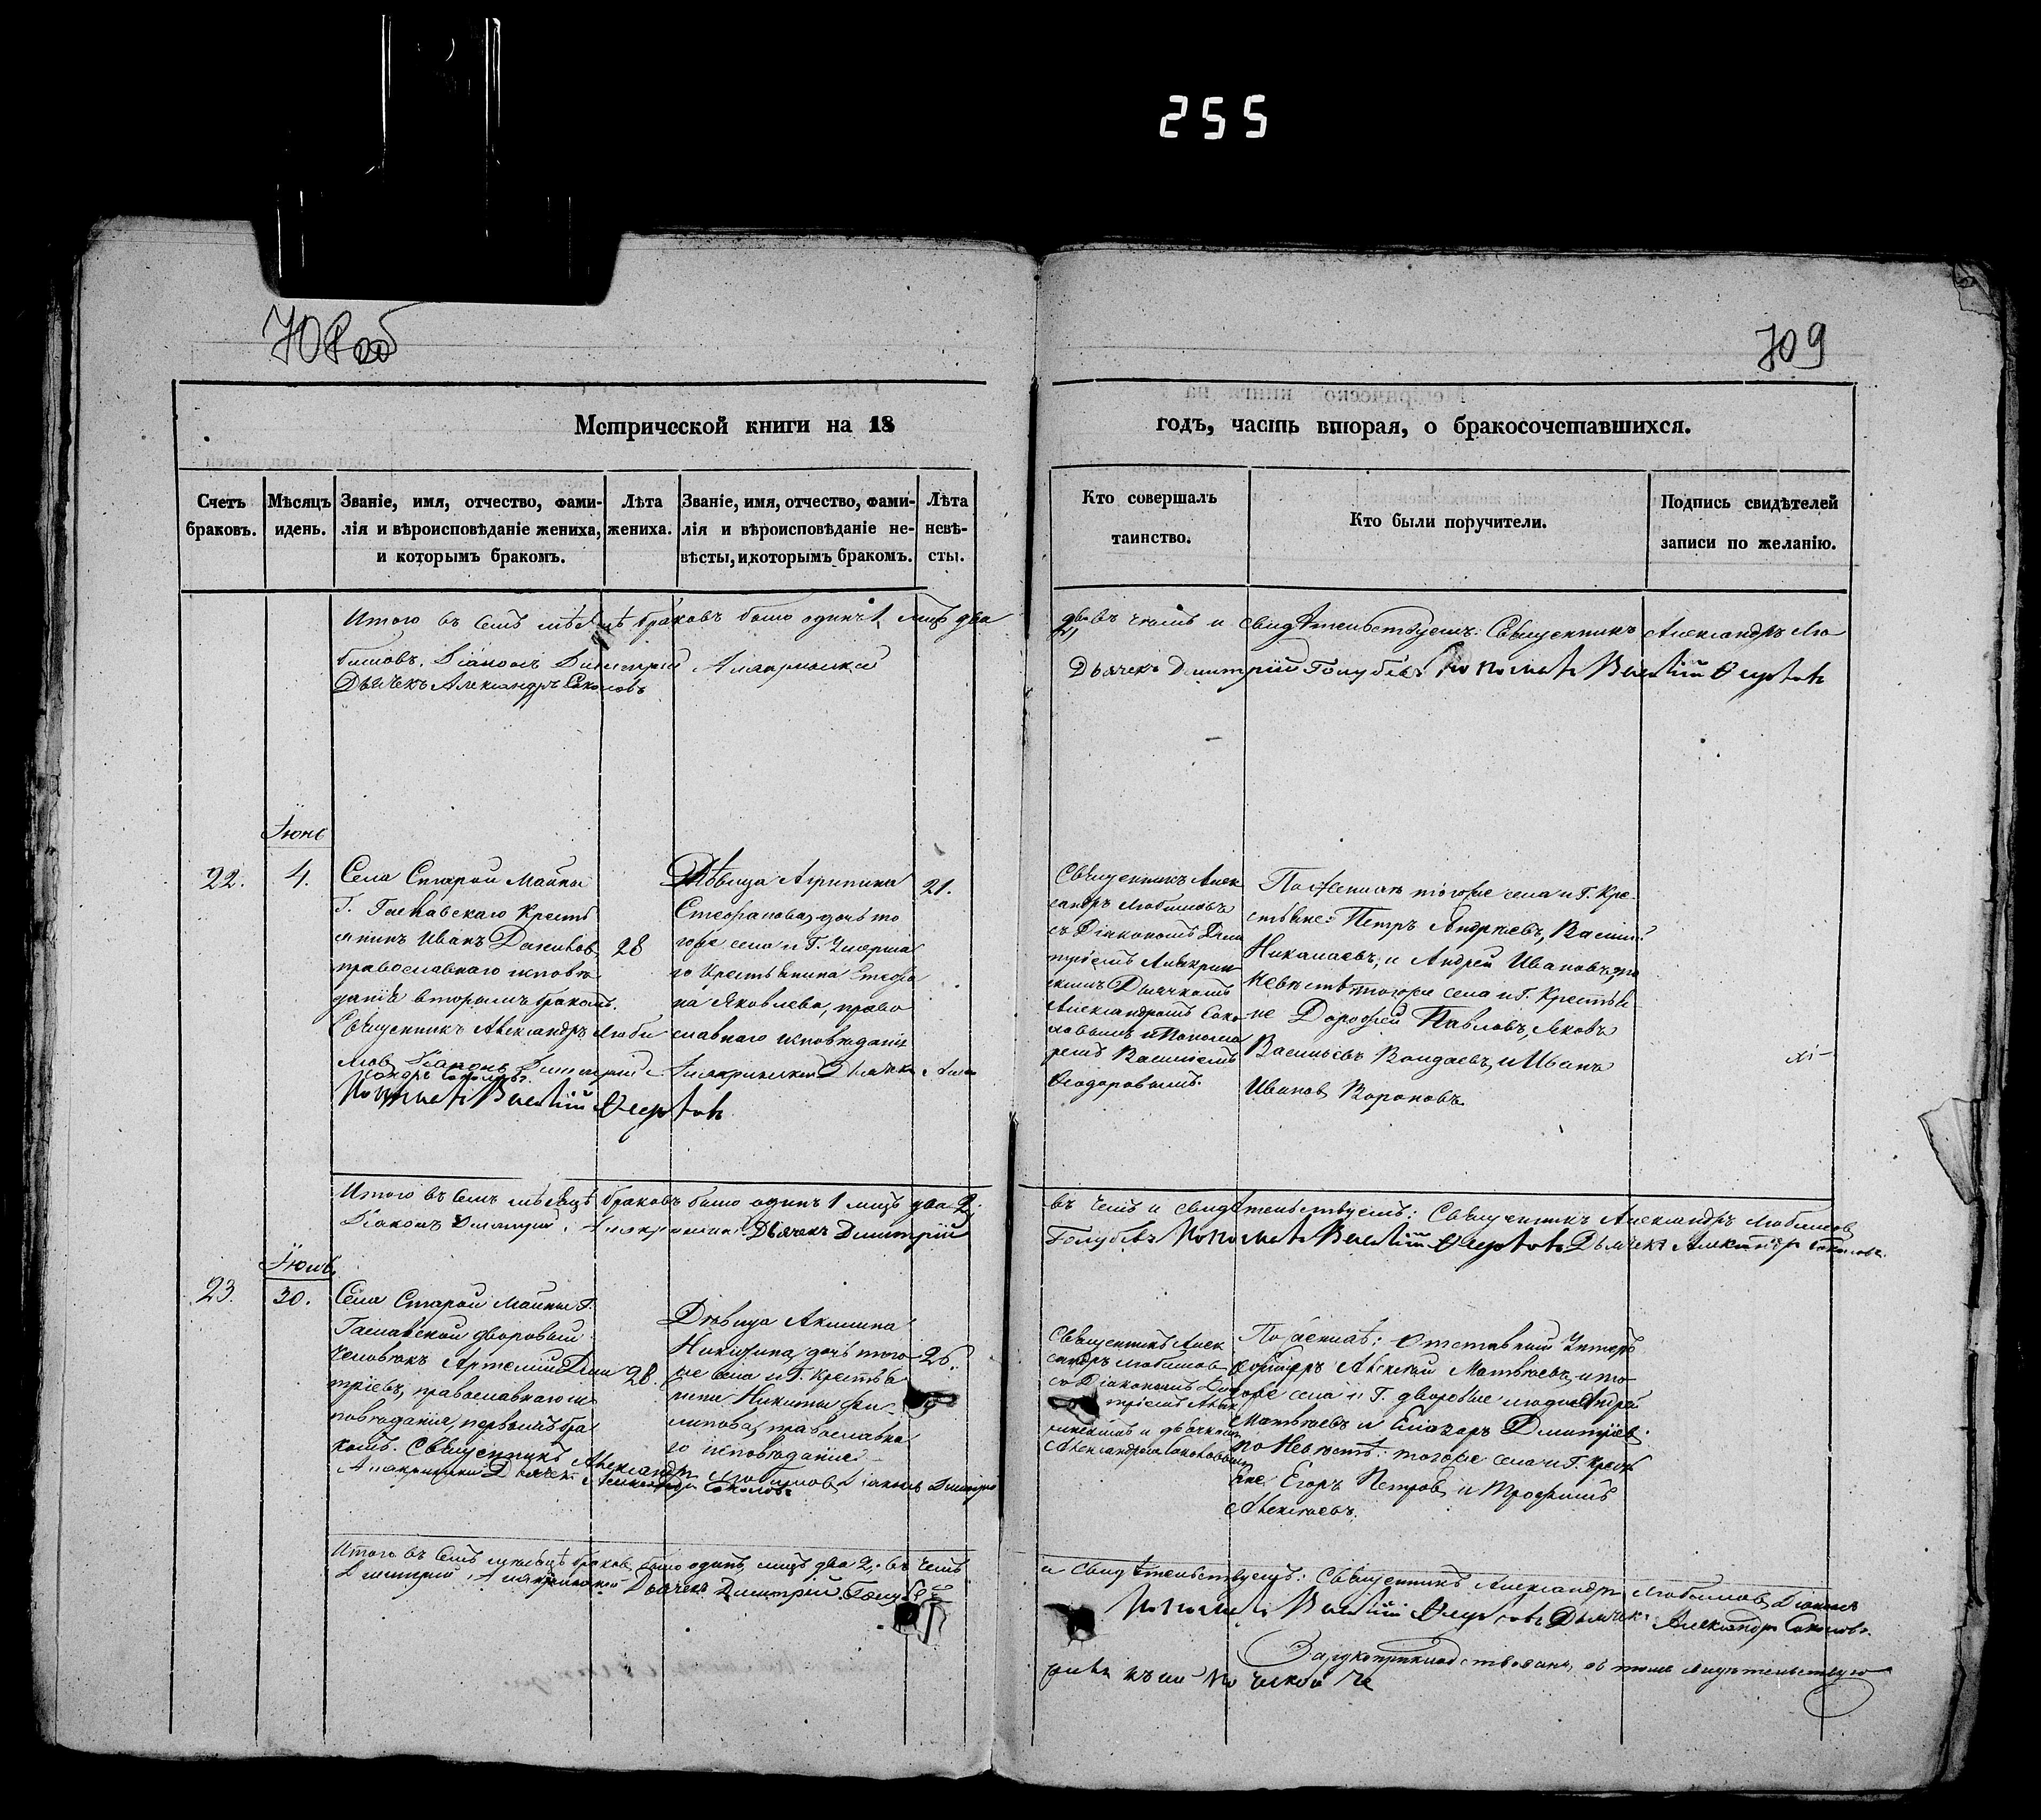 255
708 об
709
Метрической книги на 18
годъ, часть вторая, о бракосочетавшихся.
Счетъ браковъ.
Мѣсяцъ идень.
Званіе, имя, отчество, фами-
лія и вѣроисповѣданіе жениха,
и которымъ бракомъ.
Лѣта
жениха.
Званіе, имя, отчество, фами-
лія и вѣроисповѣданіе не-
вѣсты, и которымъ бракомъ.
Лѣта
невѣ-
сты.
Кто совершалъ
таинство.
Кто были поручители.
Подпись свидѣтелей
записи по желанію.
Итого въ семъ мѣсяцѣ браковъ было одинъ 1 лицъ два
въ чемъ и свидѣтельствуемъ: Священникъ Александръ Лю
бимовъ, Діаконъ Димитрій
Дьячекъ Александръ Соколовъ
Дьячекъ Дмитрій Голубевъ Пономарь Василій
Іюнь
22.
4.
Села Старой Майны
Г. Крестъ
янинъ Иванъ
православнаго исповѣ
данія вторымъ бракомъ.
Священникъ Александръ Люби
мовъ Діаконъ Димитрій
Дьячекъ
Пономарь Василій
28
Дѣвица Агрипина
Стефанова, дочь то
гоже села и Г. Умерша
го Крестьянина Стефа
на Яковлева, право
славнаго исповѣданія
21.
Священникъ Алек
сандръ Любимовъ
съ Діакономъ Дим
тріемъ
Дьячкомъ
Александромъ Соко
ловымъ и Понома
ремъ Василіемъ
Ѳеодоровымъ.
По женихѣ тогоже села и Г. Кре
стьяне: Петръ Андреевъ, Василій
Николаевъ, и Андрей Ивановъ, по
невѣстѣ тогоже села и Г. Крестья
не Дорофей Павловъ, Яковъ
Васильевъ и Иванъ
Ивановъ Вороновъ.
Итого въ семъ мѣсяцѣ браковъ было одинъ 1 лицъ два 2;
въ чемъ и свидѣтельствуемъ: Священникъ Александръ Любимовъ
Діаконъ Димитрій Дьячекъ Дмитрій
Голубевъ Пономарь Василій Дьячекъ Александръ Соколовъ.
Іюль
23.
30.
Села Старой Майны Г.
дворовый
человѣкъ Артемій Дми
тріевъ, православнаго ис
повѣданія, первымъ бра
комъ. Священникъ Александръ
Любимовъ Діаконъ Димитрій
Дьячекъ Александръ Соколовъ
28.
Дѣвица Акилина
Никитина, дочь того
же села и Г. Крестья
нина Никиты Фи
липова, православна
го исповѣданія
26.
Священникъ Алек
сандръ Любимовъ
съ Діакономъ Дим
тріемъ
и дьячкомъ
Александромъ Соколовымъ
По женихѣ: Отставный Унтеръ
офицеръ Алексѣй Матвѣевъ, и то
гоже села и Г. дворовые люди Андрей
Матвѣевъ и Елизаръ Димитріев.
по Невѣстѣ: тогоже села и Г. Крестья
не Егоръ Петровъ и Трофимъ
Алексѣевъ.
Итого въ семъ мѣсяцѣ браковъ было одинъ, лицъ два 2; въ чемъ
и свидѣтельствуемъ: Священникъ Александръ Любимовъ, Діаконъ
Димитрій Дьячекъ Димитрій Голубевъ
Пономарь Василій Дьячекъ Александръ Соколовъ.